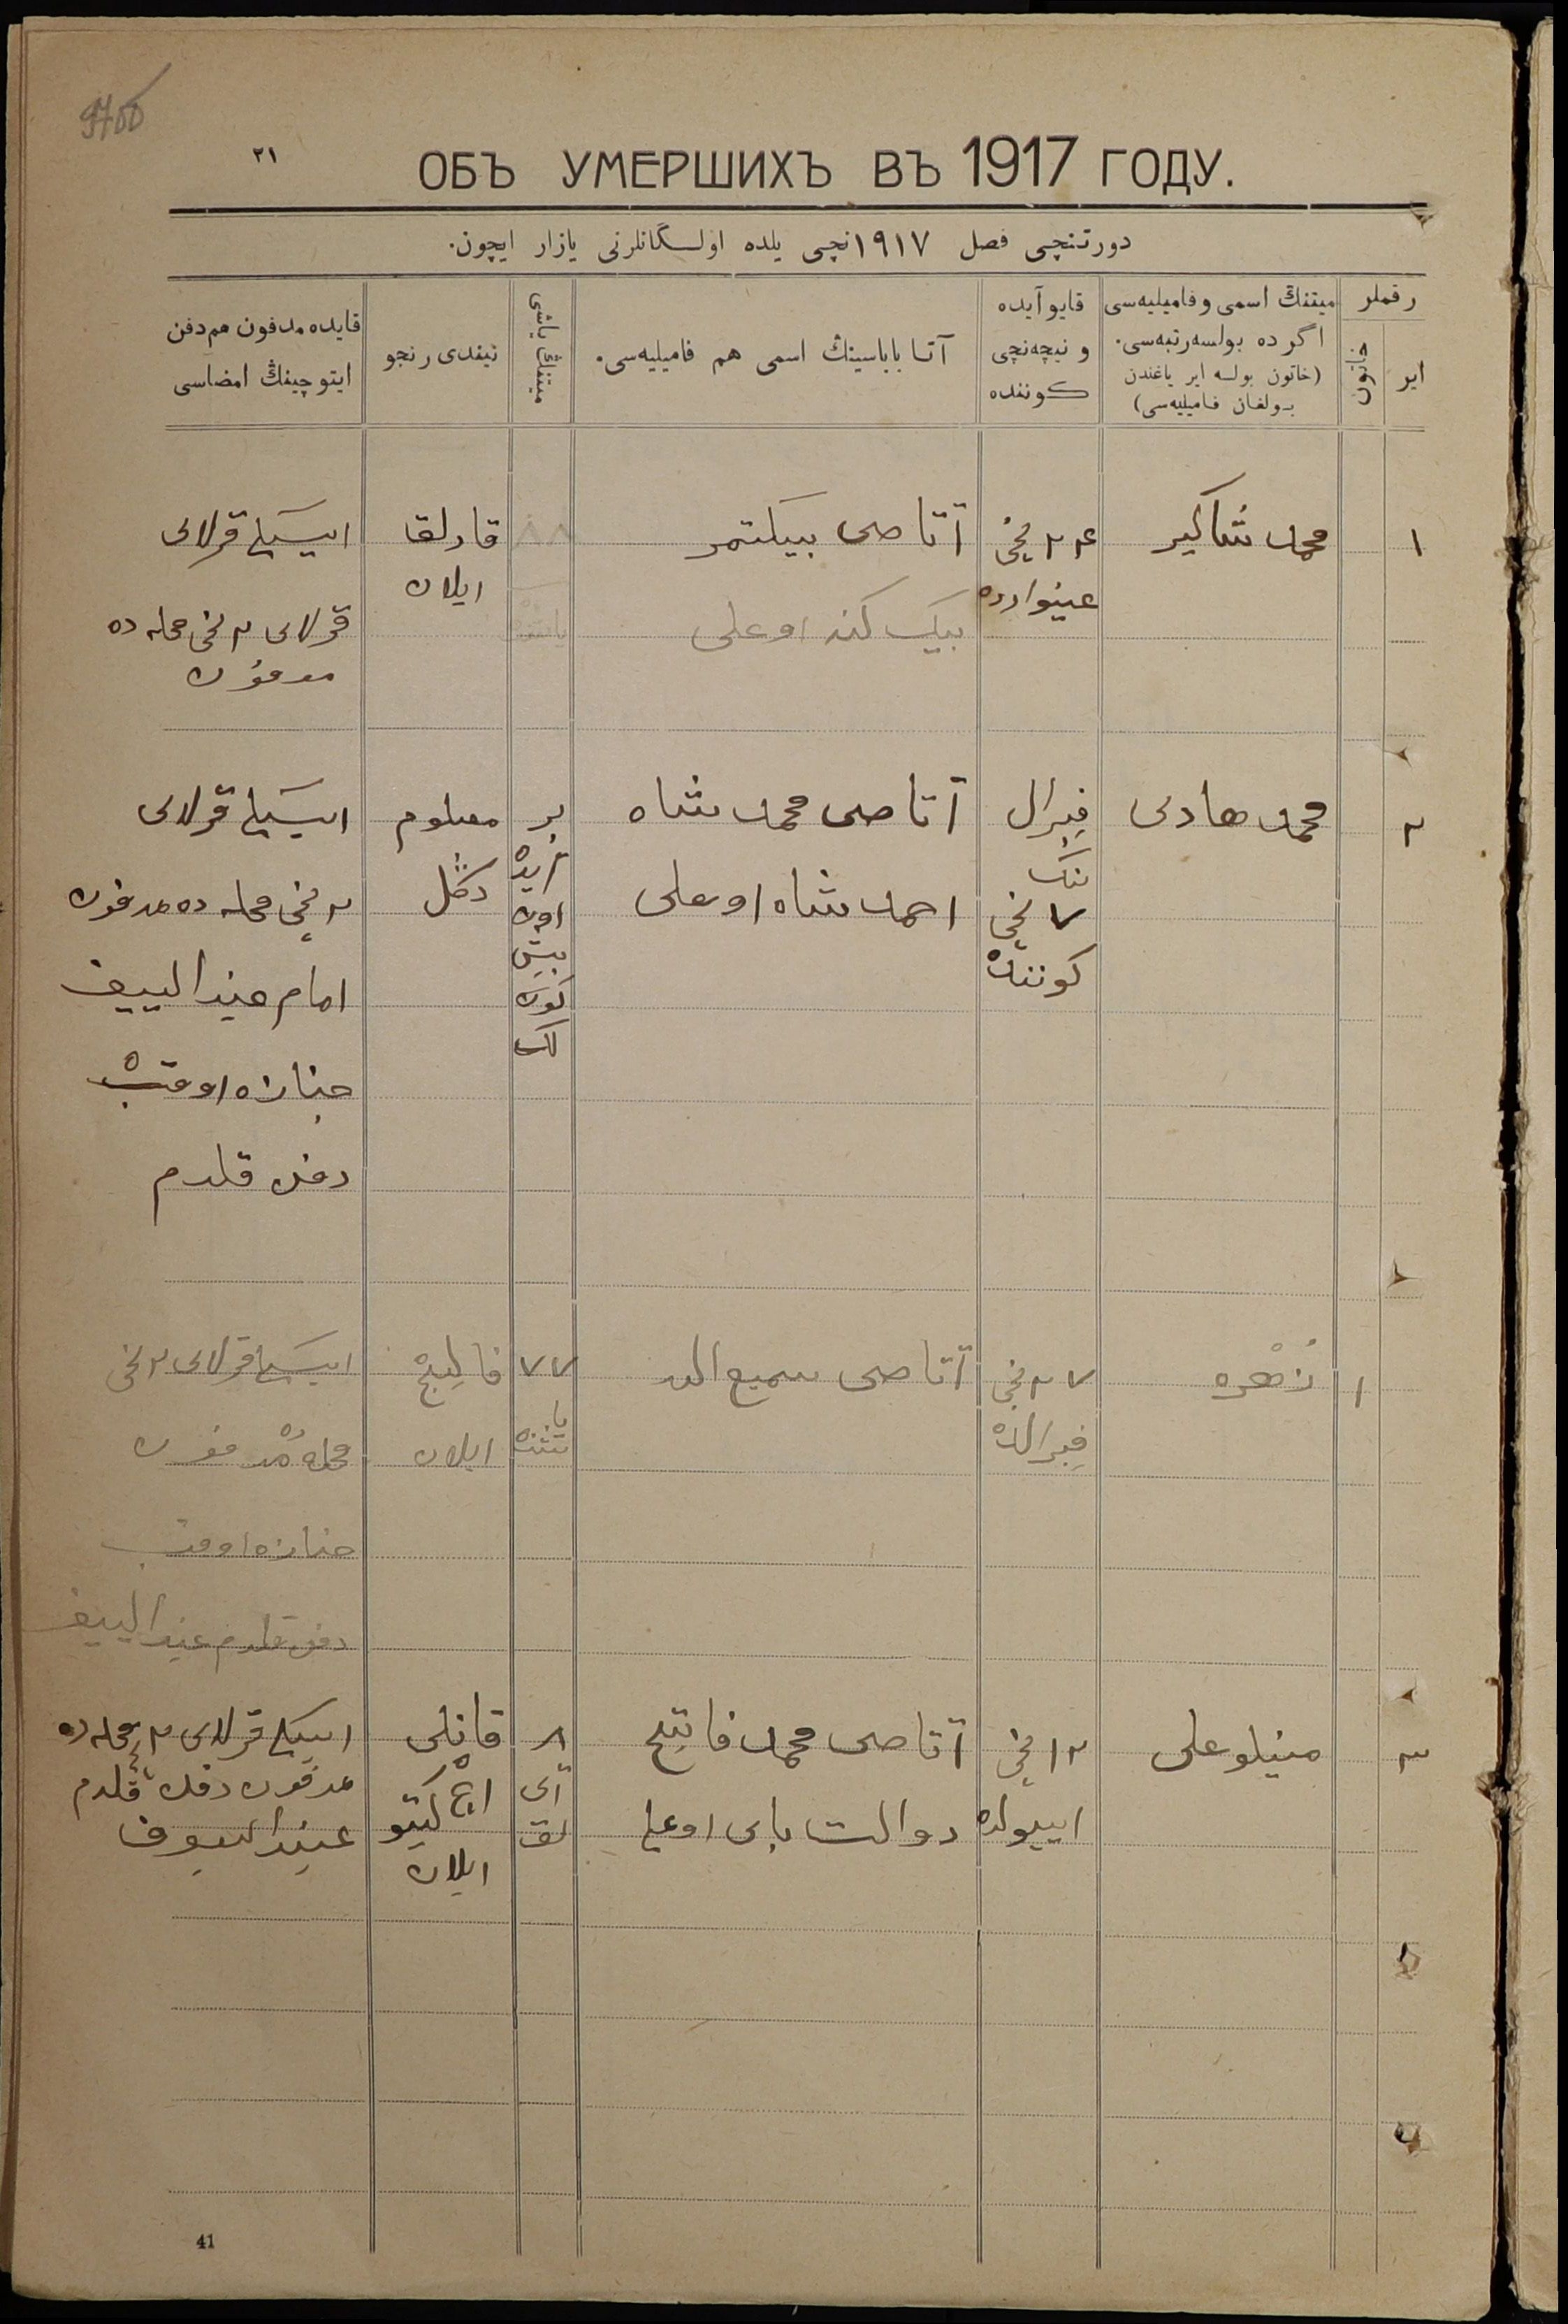 ٢١
ОБЪ УМЕРШИХЪ ВЪ 1917 ГОДУ.
دورتنچی فصل ١٩١٧نچی یلده اولـگانلرنی یازار ایچون.
رقملر
ایر
خاتون
میتنڭ اسمی و فامیلیه‌سی
اگر ده بولسه رتبه‌سی.
(خاتون بولسه ایر یاغندن
بولغان فامیلیه‌سی)
قایو آیده
و نیچه‌نچی
کوننده
آتا باباسینڭ اسمی هم فامیلییه‌سی.
میتنڭ یاشی
نیندی رنجو
قایده مدفون هم دفن
ایتوچینڭ امضاسی
١
محمد شاکیر
٢٤ نچی
عینوارده
آتاصی بیکتمر
٨٨
قارلق
ایلان
ایسکی قرلای
قرلای ٢ نچی محله ده
مدفون
٢
محمد هادی
فبرال
نک
٧ نچی
کوننده
آتاصی محمد شاه
احمد شاه اوغلی
بر
آیده
اون
بیش
کون
لک
معلوم
دگل
ایسکی قرلای
٢ نچی محله ده مدفون
امام
جنازه اوقب
دفن قلدم
١
زهره
٢٧ نچی
فبرالده
آتاصی سمیع الله
٧٧
یاشنده
فالج
ایلان
ایسکی قرلای ٢ نچی
محله ده مدفون
جنازه اوقب
دفن قلدم
٣
مینلوعلی
١٢ نچی
اییولده
آتاصی محمد فاتح
دوالت بای اوغلی
٨
آی
لق
قانلی
اچ کیتو
ایلان
ایسکی قرلای ٢ محله ده
مدفون دفن قلدم
41